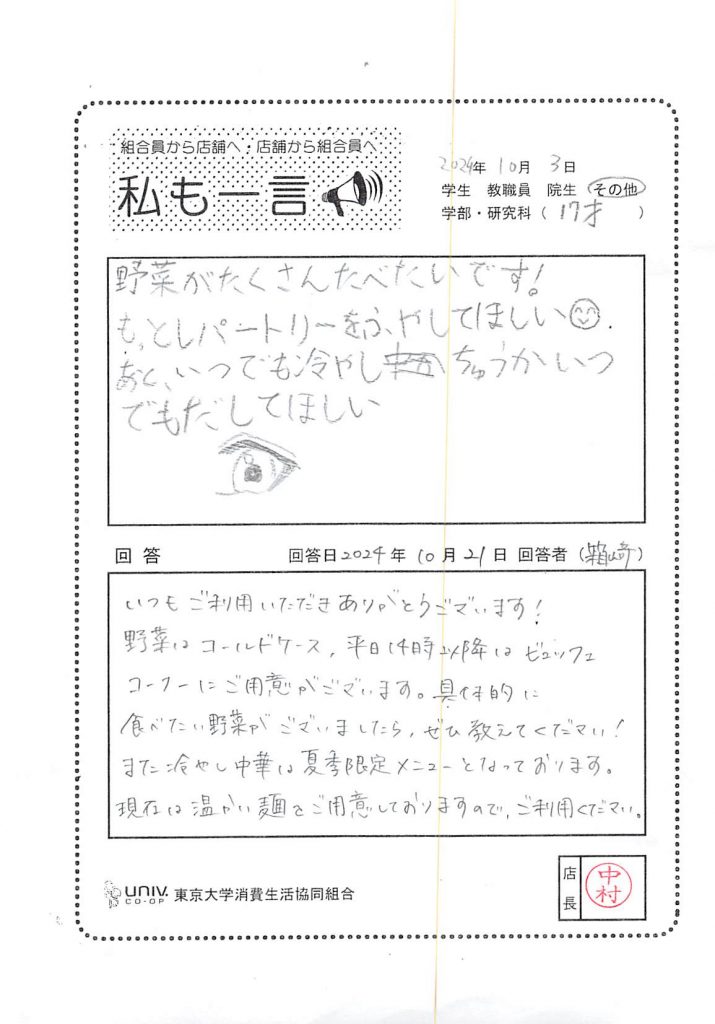 組合員から店舗へ・店舗から組合員へ
私も一言
2024年 10月 3日
学生 教職員 院生 その他
学部・研究科( 17才 )
野菜がたくさんたべたいです!
もっとレパートリーをふやしてほしい
あと、いつでも冷やしちゅうかいつ
でもだしてほしい
回答 回答日2024年 10月21日 回答者(箱崎)
いつもご利用いただきありがとうございます!
野菜はコールドケース、平日14時以降はビュッフェ
コーナーにご用意がございます。具体的に
食べたい野菜がございましたら、ぜひ教えてください!
また冷やし中華は夏季限定メニューとなっております。
現在は温かい麺をご用意しておりますので、ご利用ください。
UNIV. CO-OP 東京大学消費生活協同組合
店長 中村